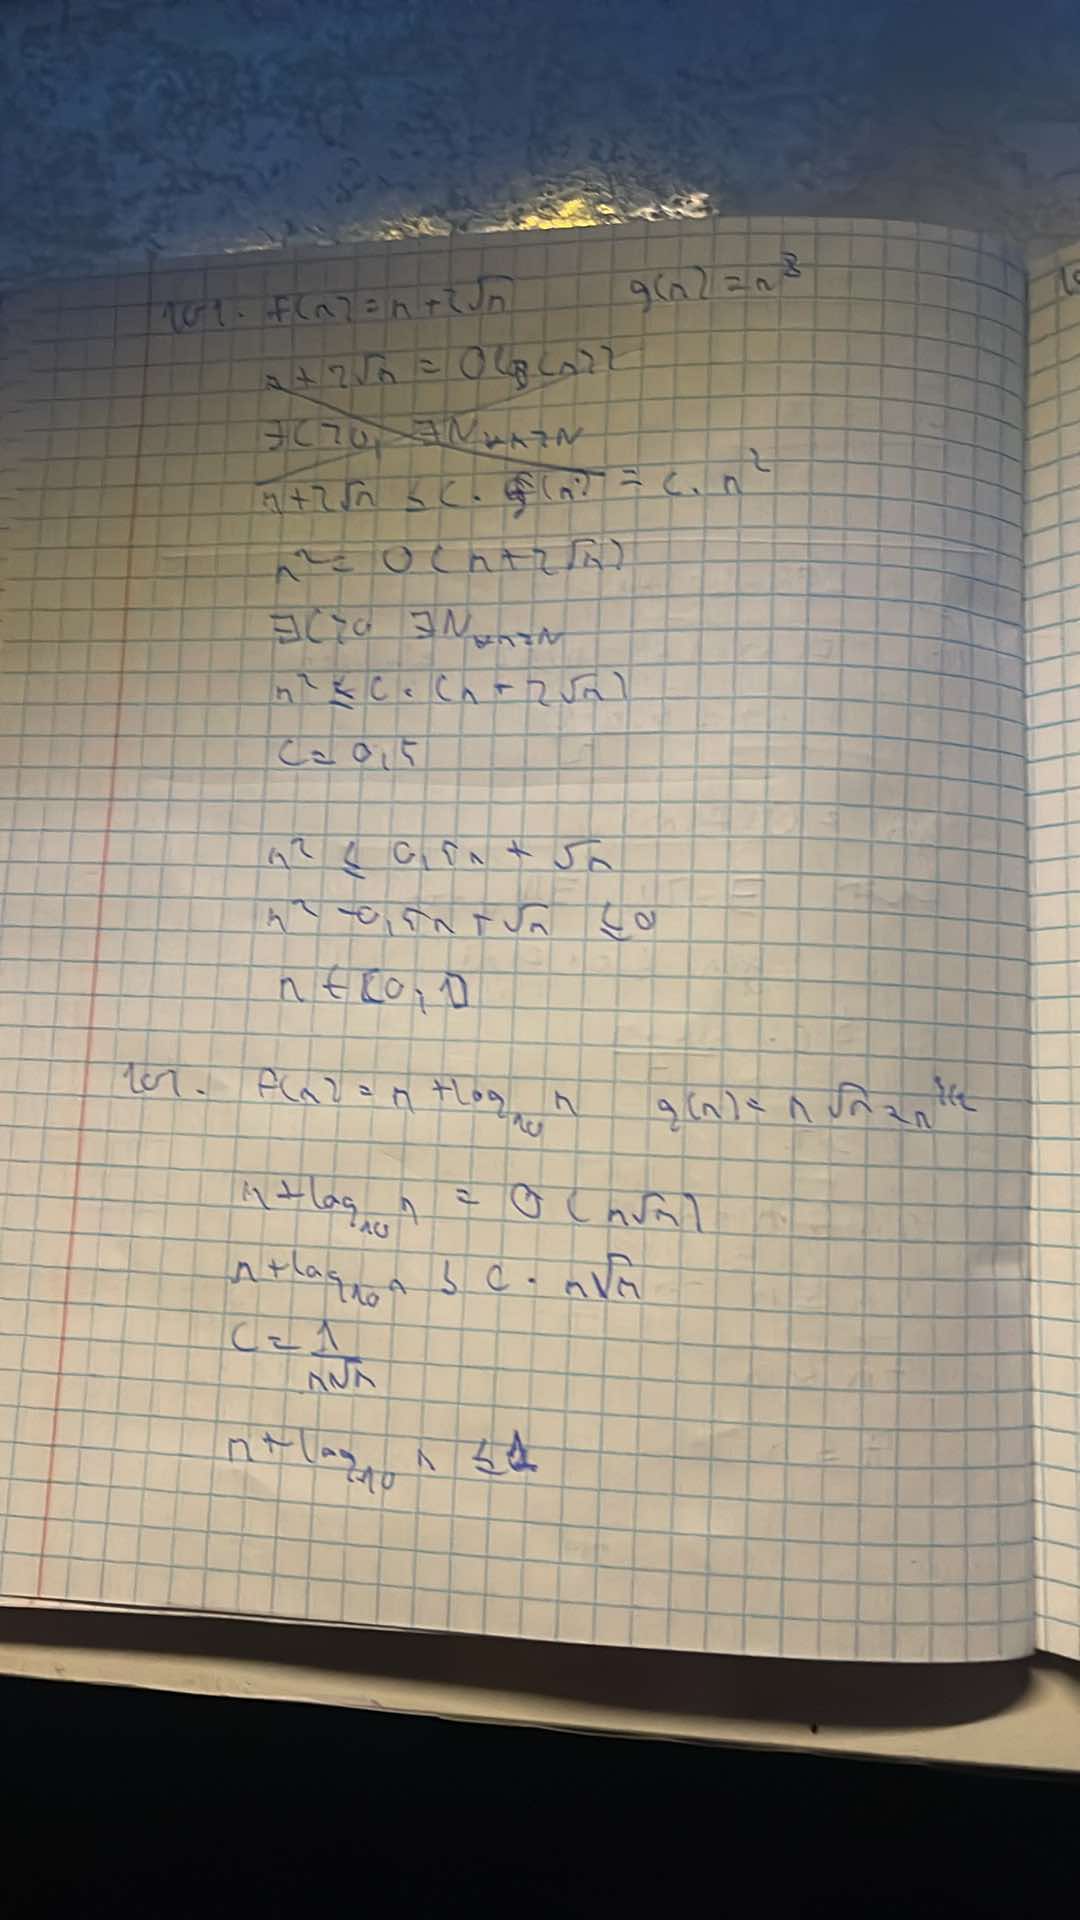 f(n) = n + 2√n g(n) = n²
n + 2√n = O(g(n))
∃C>0, ∃N ∀n>N
n + 2√n ≤ C · g(n) = C · n²
n² = O(n + 2√n)
∃C>0 ∃N ∀n>N
n² ≤ C · (n + 2√n)
C = 0,5
n² ≤ 0,5n + √n
n² - 0,5n + √n ≤ 0
n ∈ [0; 1]
f(n) = n + log₁₀ n g(n) = n√n = n^3/2
n + log₁₀ n = O(n√n)
n + log₁₀ n ≤ C · n√n
C = 1/n√n
n + log₁₀ n ≤ 1